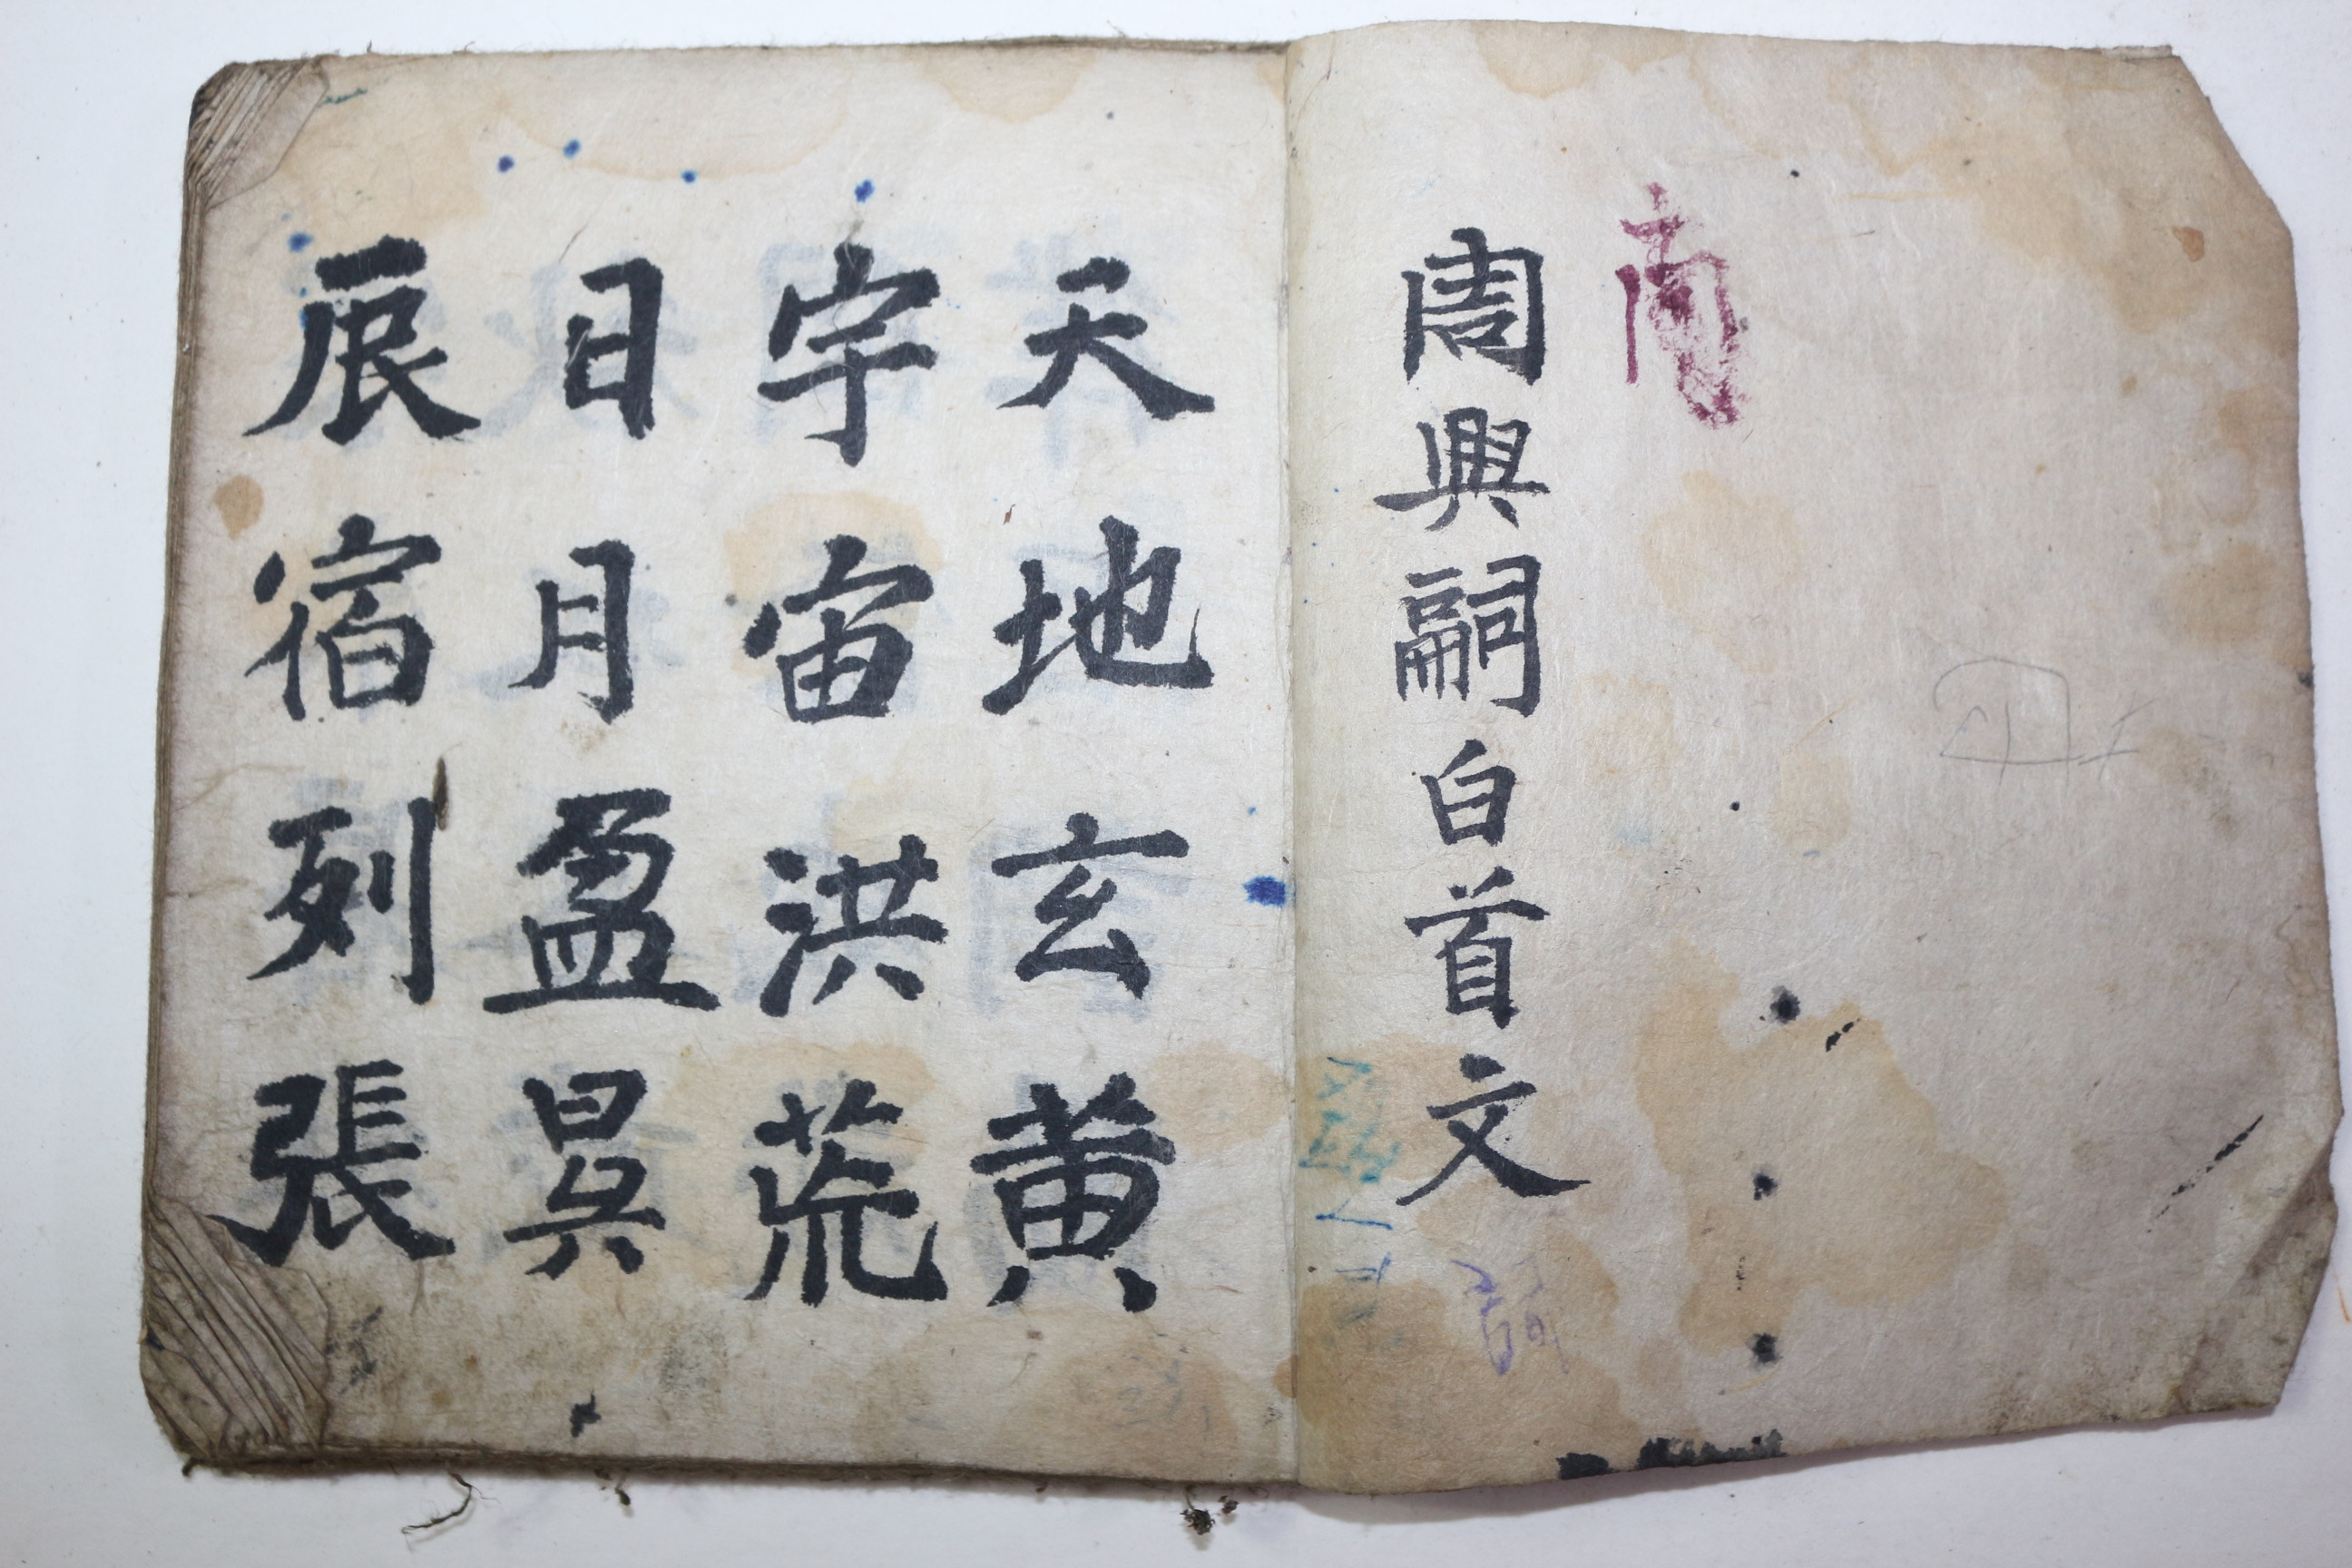 南
周興嗣白首文
天地玄黃
宇宙洪荒
日月盈昗
辰宿列張